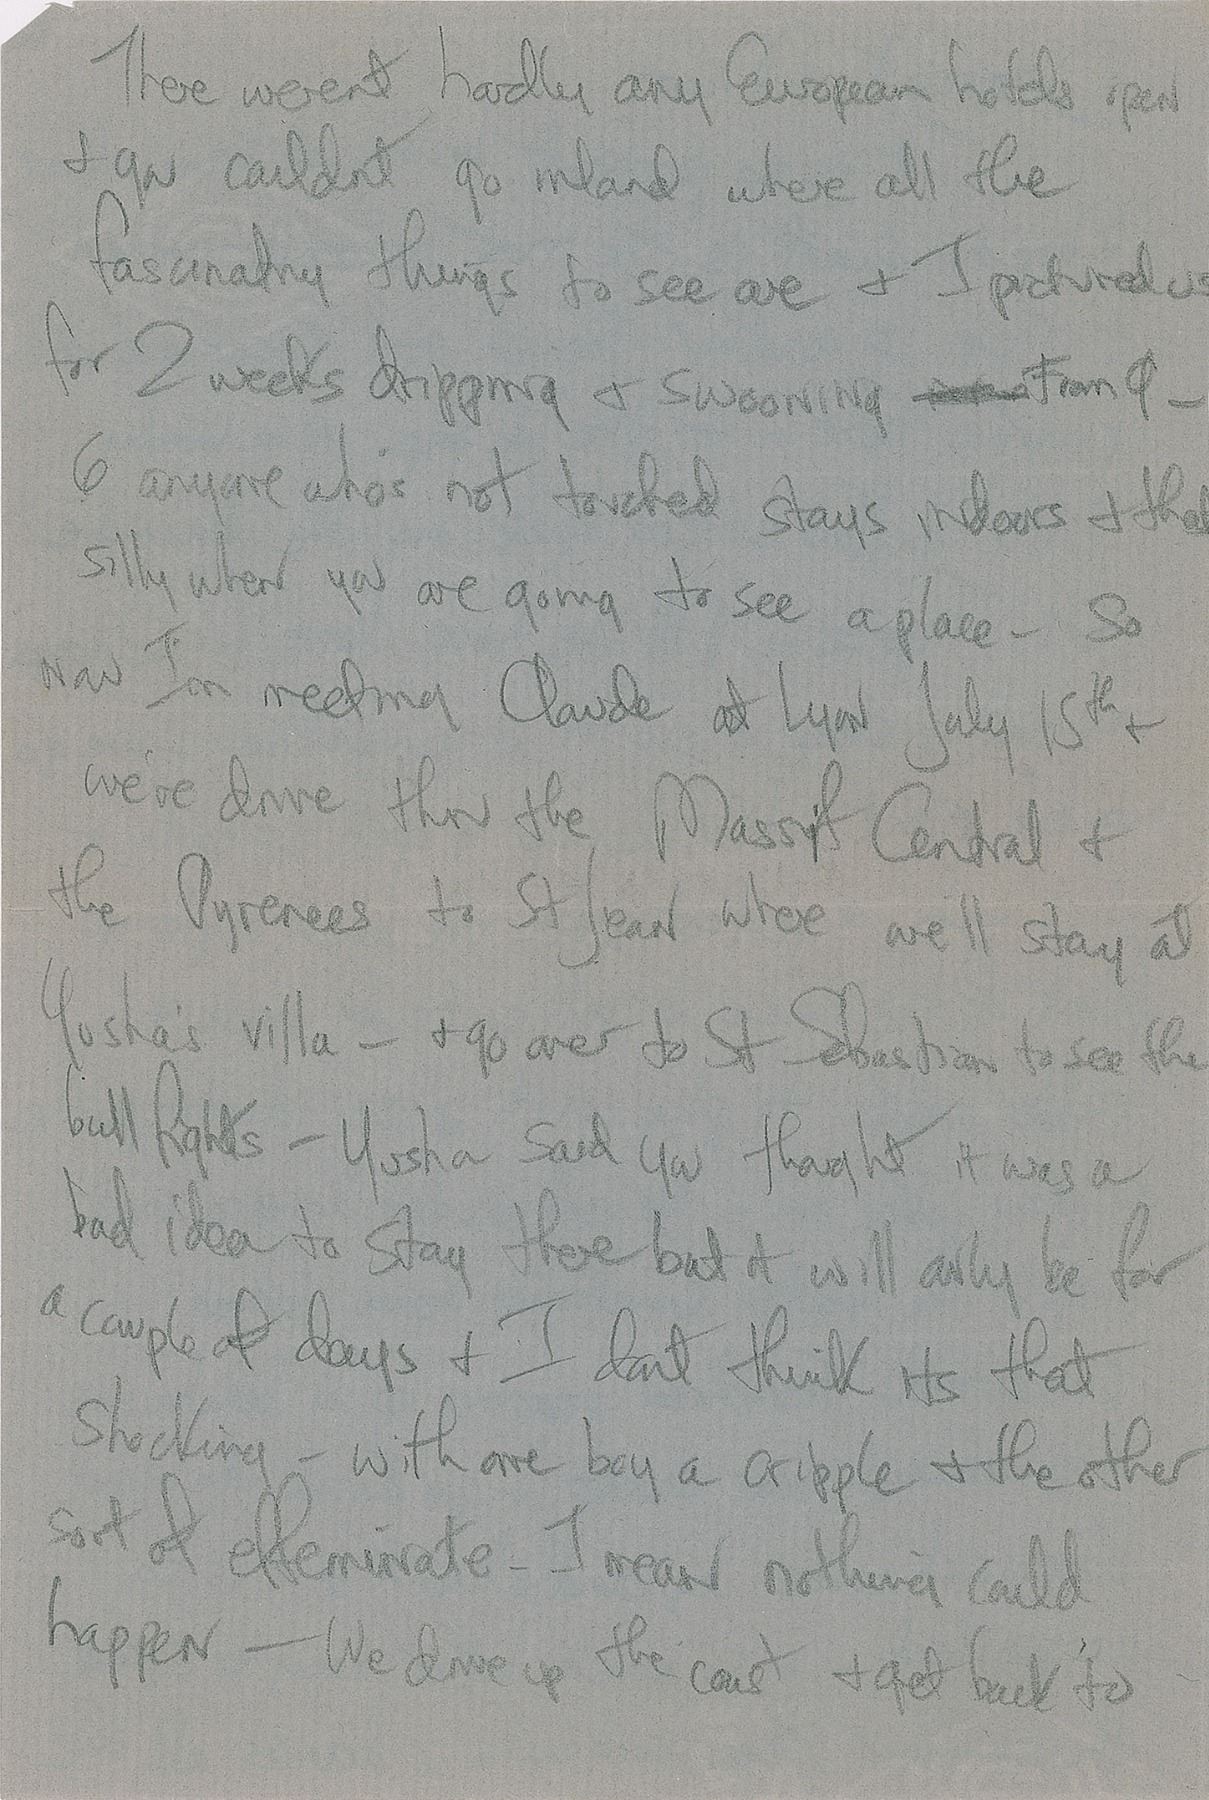 There werent hardly any European hotels open
+ you couldnt go inland where all the
fascinating things to see are + I pictured us
for 2 weeks dripping + swooning from 9 -
6 anyone who's not touched stays indoors + that
silly when you are going to see a place - So
now Im meeting Claude at Lyon July 15th +
we're drive thru the Massif Central +
the Pyrenees to St Jean where we'll stay at
Yusha's villa - + go over to St Sebastian to see the
bull fights - Yusha said you thought it was a
bad idea to stay there but it will only be for
a couple of days + I dont think its that
shocking - with one boy a cripple + the other
sort of effeminate - I mean nothing could
happen - We drive up the coast + get back to